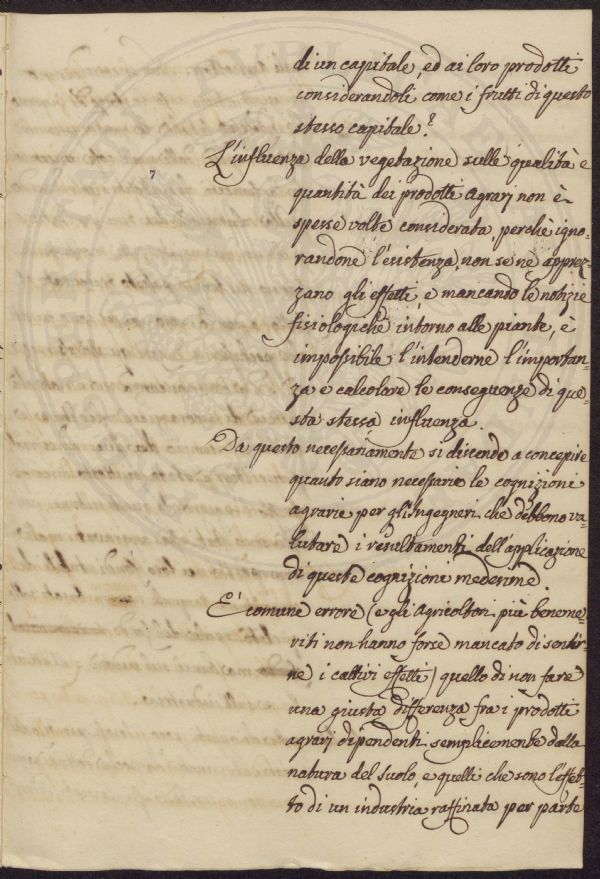 di un capitale, ed ai loro prodotti
considerandoli come i frutti di questo
stesso capitale?
L'influenza della vegetazione sulle qualità e
quantità dei prodotti agrarj non è
spesse volte considerata, perchè igno-
randone l'esistenza, non se ne apprez-
zano gli effetti, e mancando le notizie
fisiologiche intorno alle piante, è
impossibile l'intenderne l'importan-
za e calcolare le conseguenze di que-
sta stessa influenza.
Da questo necessariamente si discende a concepire
quanto siano necessarie le cognizioni
agrarie per gli Ingegneri che debbono va-
lutare i resultamenti dell'applicazione
di queste cognizioni medesime.
È comune errore (e gli Agricoltori più beneme-
riti non hanno forse mancato di sentir-
ne i cattivi effetti) quello di non fare
una giusta differenza fra i prodotti
agrarj dipendenti semplicemente dalla
natura del suolo, e quelli che sono l'effet-
to di un industria raffinata per parte